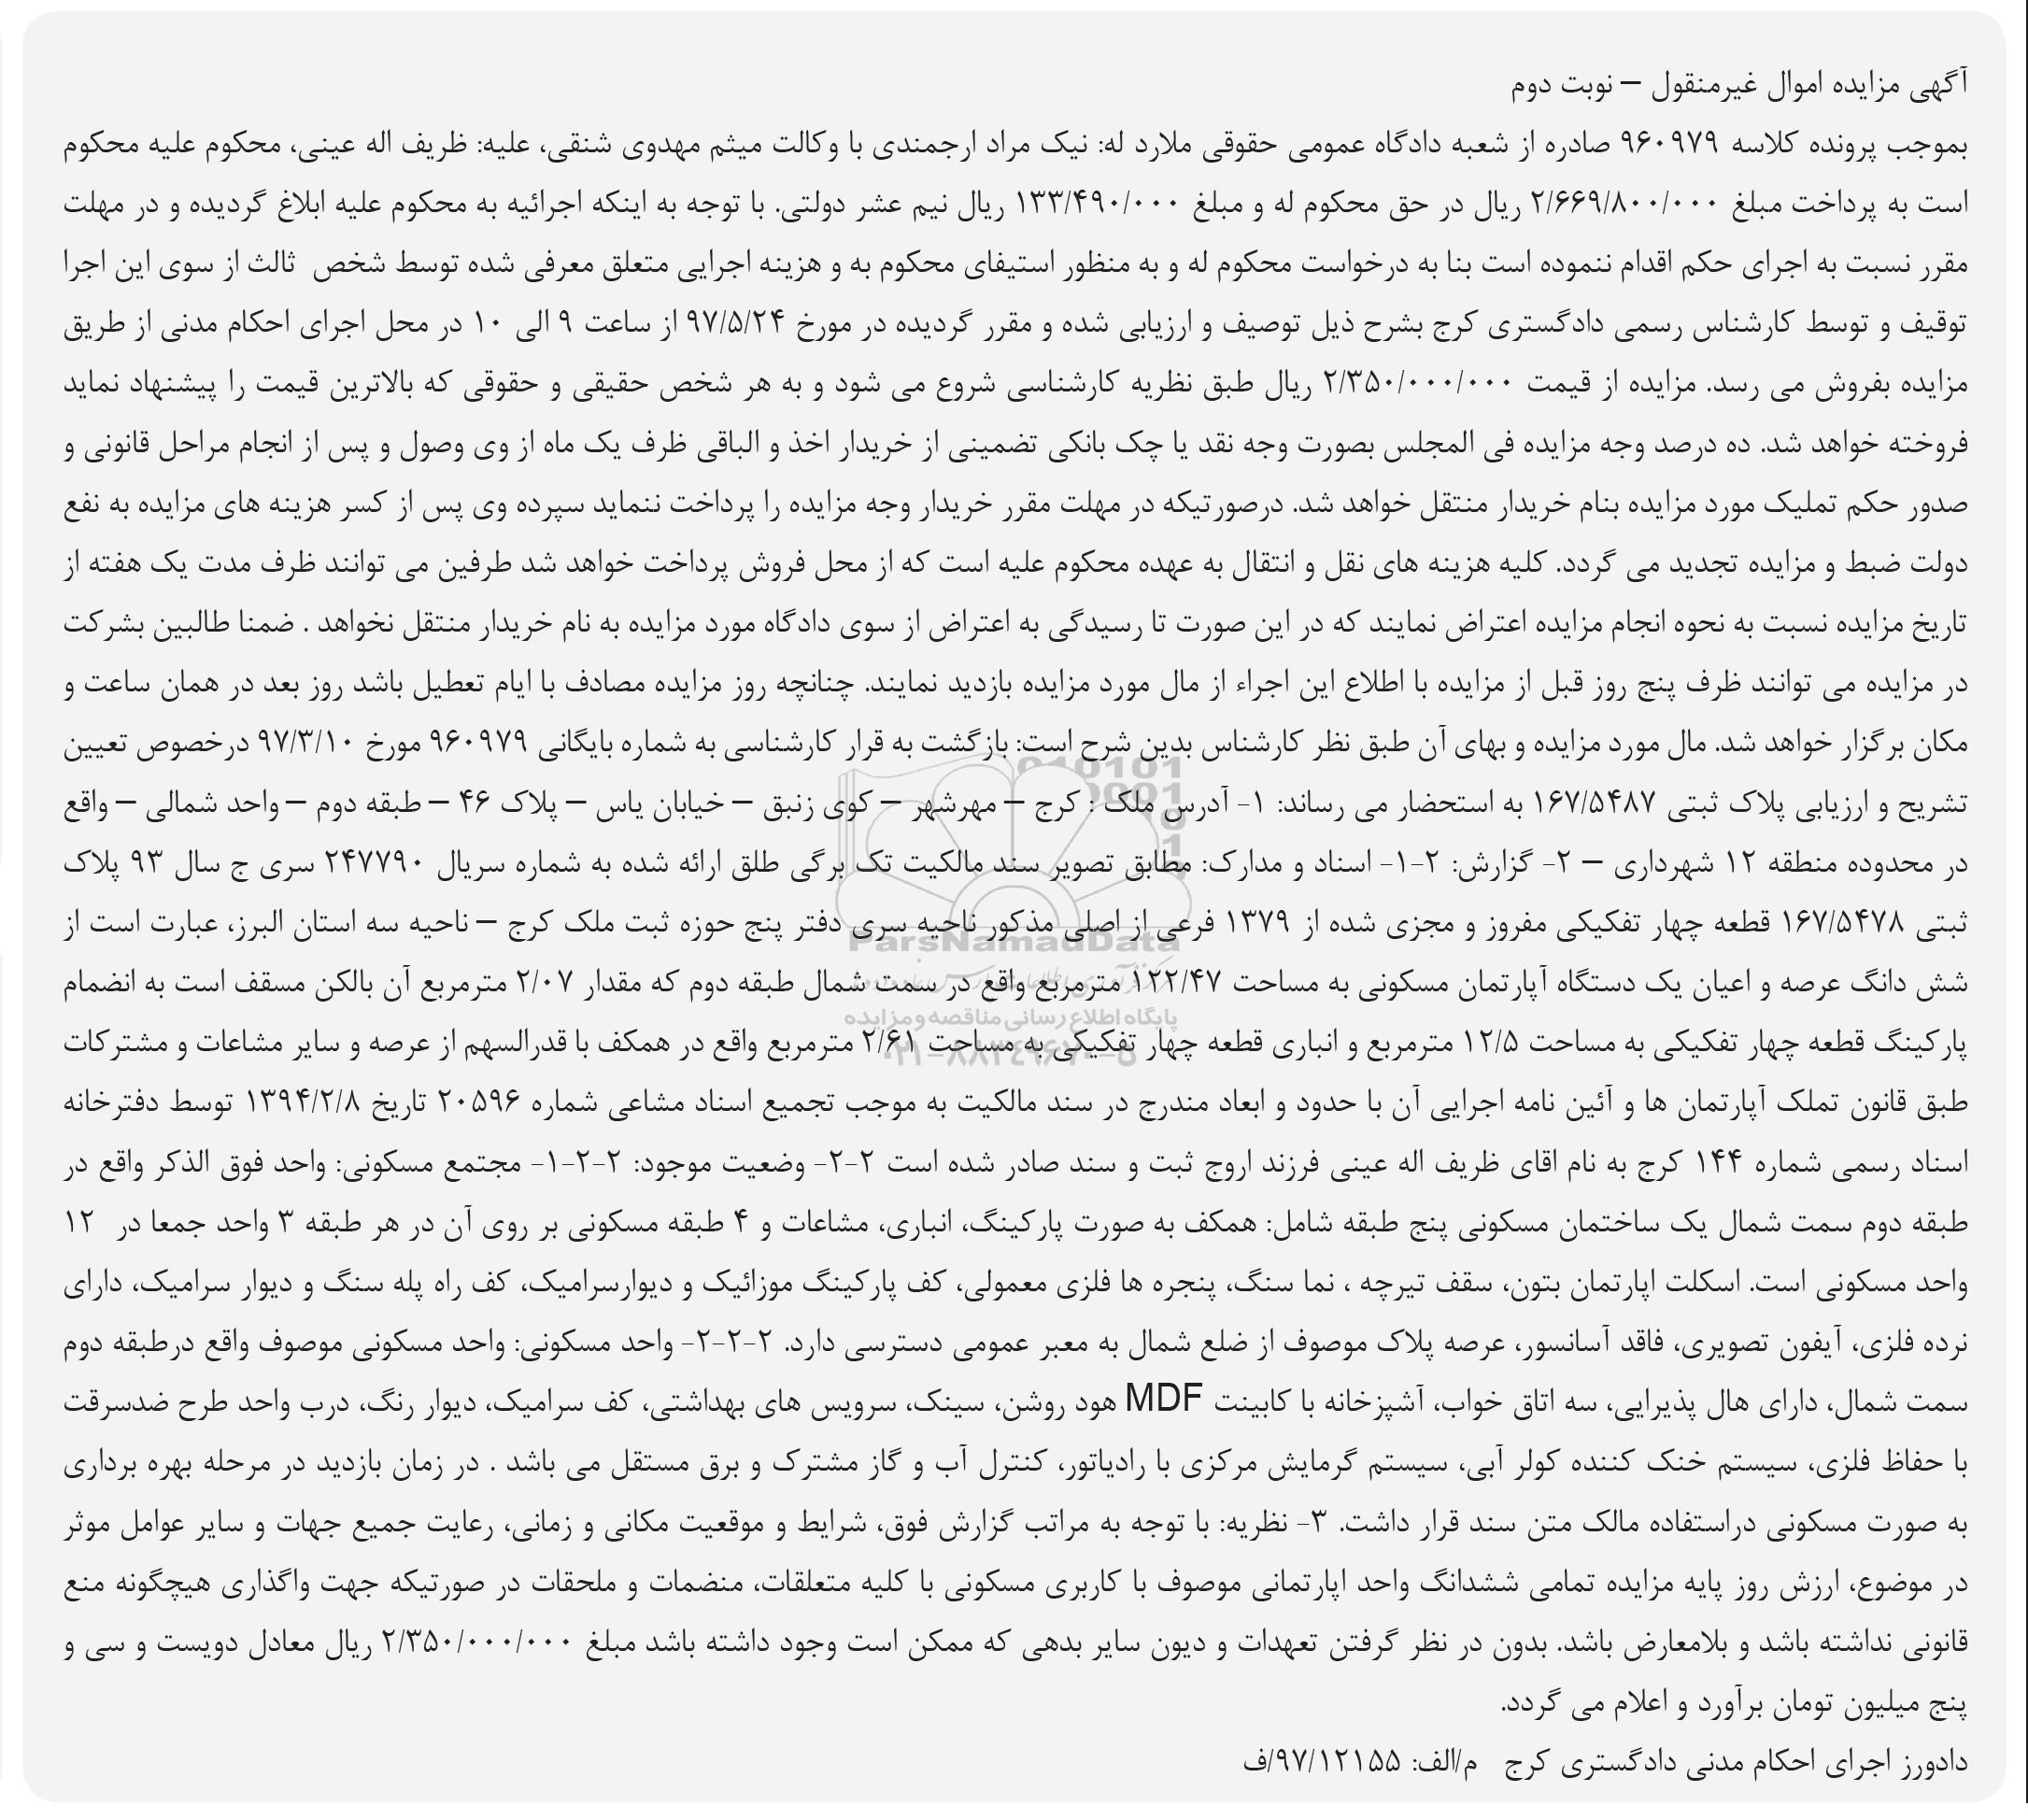 آگهی مزایده اموال غیرمنقول – نوبت دوم
بموجب پرونده کلاسه ۹۶۰۹۷۹ صادره از شعبه دادگاه عمومی حقوقی ملارد له: نیک مراد ارجمندی با وکالت میثم مهدوی شنقی، علیه: ظریف اله عینی، محکوم علیه محکوم
است به پرداخت مبلغ ۲/۶۶۹/۸۰۰/۰۰۰ ریال در حق محکوم له و مبلغ ۱۳۳/۴۹۰/۰۰۰ ریال نیم عشر دولتی. با توجه به اینکه اجرائیه به محکوم علیه ابلاغ گردیده و در مهلت
مقرر نسبت به اجرای حکم اقدام ننموده است بنا به درخواست محکوم له و به منظور استیفای محکوم به و هزینه اجرایی متعلق معرفی شده توسط شخص ثالث از سوی این اجرا
توقیف و توسط کارشناس رسمی دادگستری کرج بشرح ذیل توصیف و ارزیابی شده و مقرر گردیده در مورخ ۹۷/۵/۲۴ از ساعت ۹ الی ۱۰ در محل اجرای احکام مدنی از طریق
مزایده بفروش می رسد. مزایده از قیمت ۲/۳۵۰/۰۰۰/۰۰۰ ریال طبق نظریه کارشناسی شروع می شود و به هر شخص حقیقی و حقوقی که بالاترین قیمت را پیشنهاد نماید
فروخته خواهد شد. ده درصد وجه مزایده فی المجلس بصورت وجه نقد یا چک بانکی تضمینی از خریدار اخذ و الباقی ظرف یک ماه از وی وصول و پس از انجام مراحل قانونی و
صدور حکم تملیک مورد مزایده بنام خریدار منتقل خواهد شد. درصورتیکه در مهلت مقرر خریدار وجه مزایده را پرداخت ننماید سپرده وی پس از کسر هزینه های مزایده به نفع
دولت ضبط و مزایده تجدید می گردد. کلیه هزینه های نقل و انتقال به عهده محکوم علیه است که از محل فروش پرداخت خواهد شد طرفین می توانند ظرف مدت یک هفته از
تاریخ مزایده نسبت به نحوه انجام مزایده اعتراض نمایند که در این صورت تا رسیدگی به اعتراض از سوی دادگاه مورد مزایده به نام خریدار منتقل نخواهد . ضمنا طالبین بشرکت
در مزایده می توانند ظرف پنج روز قبل از مزایده با اطلاع این اجراء از مال مورد مزایده بازدید نمایند. چنانچه روز مزایده مصادف با ایام تعطیل باشد روز بعد در همان ساعت و
مکان برگزار خواهد شد. مال مورد مزایده و بهای آن طبق نظر کارشناس بدین شرح است: بازگشت به قرار کارشناسی به شماره بایگانی ۹۶۰۹۷۹ مورخ ۹۷/۳/۱۰ درخصوص تعیین
تشریح و ارزیابی پلاک ثبتی ۱۶۷/۵۴۸۷ به استحضار می رساند: ۱- آدرس ملک : کرج – مهرشهر – کوی زنبق – خیابان یاس – پلاک ۴۶ – طبقه دوم – واحد شمالی – واقع
در محدوده منطقه ۱۲ شهرداری – ۲- گزارش: ۲-۱- اسناد و مدارک: مطابق تصویر سند مالکیت تک برگی طلق ارائه شده به شماره سریال ۲۴۷۷۹۰ سری ج سال ۹۳ پلاک
ثبتی ۱۶۷/۵۴۷۸ قطعه چهار تفکیکی مفروز و مجزی شده از ۱۳۷۹ فرعی از اصلی مذکور ناحیه سری دفتر پنج حوزه ثبت ملک کرج – ناحیه سه استان البرز، عبارت است از
شش دانگ عرصه و اعیان یک دستگاه آپارتمان مسکونی به مساحت ۱۲۲/۴۷ مترمربع واقع در سمت شمال طبقه دوم که مقدار ۲/۰۷ مترمربع آن بالکن مسقف است به انضمام
پارکینگ قطعه چهار تفکیکی به مساحت ۱۲/۵ مترمربع و انباری قطعه چهار تفکیکی به مساحت ۲/۶۱ مترمربع واقع در همکف با قدرالسهم از عرصه و سایر مشاعات و مشترکات
طبق قانون تملک آپارتمان ها و آئین نامه اجرایی آن با حدود و ابعاد مندرج در سند مالکیت به موجب تجمیع اسناد مشاعی شماره ۲۰۵۹۶ تاریخ ۱۳۹۴/۲/۸ توسط دفترخانه
اسناد رسمی شماره ۱۴۴ کرج به نام اقای ظریف اله عینی فرزند اروج ثبت و سند صادر شده است ۲-۲- وضعیت موجود: ۲-۲-۱- مجتمع مسکونی: واحد فوق الذکر واقع در
طبقه دوم سمت شمال یک ساختمان مسکونی پنج طبقه شامل: همکف به صورت پارکینگ، انباری، مشاعات و ۴ طبقه مسکونی بر روی آن در هر طبقه ۳ واحد جمعا در ۱۲
واحد مسکونی است. اسکلت اپارتمان بتون، سقف تیرچه ، نما سنگ، پنجره ها فلزی معمولی، کف پارکینگ موزائیک و دیوارسرامیک، کف راه پله سنگ و دیوار سرامیک، دارای
نرده فلزی، آیفون تصویری، فاقد آسانسور، عرصه پلاک موصوف از ضلع شمال به معبر عمومی دسترسی دارد. ۲-۲-۲- واحد مسکونی: واحد مسکونی موصوف واقع درطبقه دوم
سمت شمال، دارای هال پذیرایی، سه اتاق خواب، آشپزخانه با کابینت MDF هود روشن، سینک، سرویس های بهداشتی، کف سرامیک، دیوار رنگ، درب واحد طرح ضدسرقت
با حفاظ فلزی، سیستم خنک کننده کولر آبی، سیستم گرمایش مرکزی با رادیاتور، کنترل آب و گاز مشترک و برق مستقل می باشد . در زمان بازدید در مرحله بهره برداری
به صورت مسکونی دراستفاده مالک متن سند قرار داشت. ۳- نظریه: با توجه به مراتب گزارش فوق، شرایط و موقعیت مکانی و زمانی، رعایت جمیع جهات و سایر عوامل موثر
در موضوع، ارزش روز پایه مزایده تمامی ششدانگ واحد اپارتمانی موصوف با کاربری مسکونی با کلیه متعلقات، منضمات و ملحقات در صورتیکه جهت واگذاری هیچگونه منع
قانونی نداشته باشد و بلامعارض باشد. بدون در نظر گرفتن تعهدات و دیون سایر بدهی که ممکن است وجود داشته باشد مبلغ ۲/۳۵۰/۰۰۰/۰۰۰ ریال معادل دویست و سی و
پنج میلیون تومان برآورد و اعلام می گردد.
دادورز اجرای احکام مدنی دادگستری کرج م/الف: ۹۷/۱۲۱۵۵/ف
ParsNamadData
پایگاه اطلاع رسانی مناقصه و مزایده